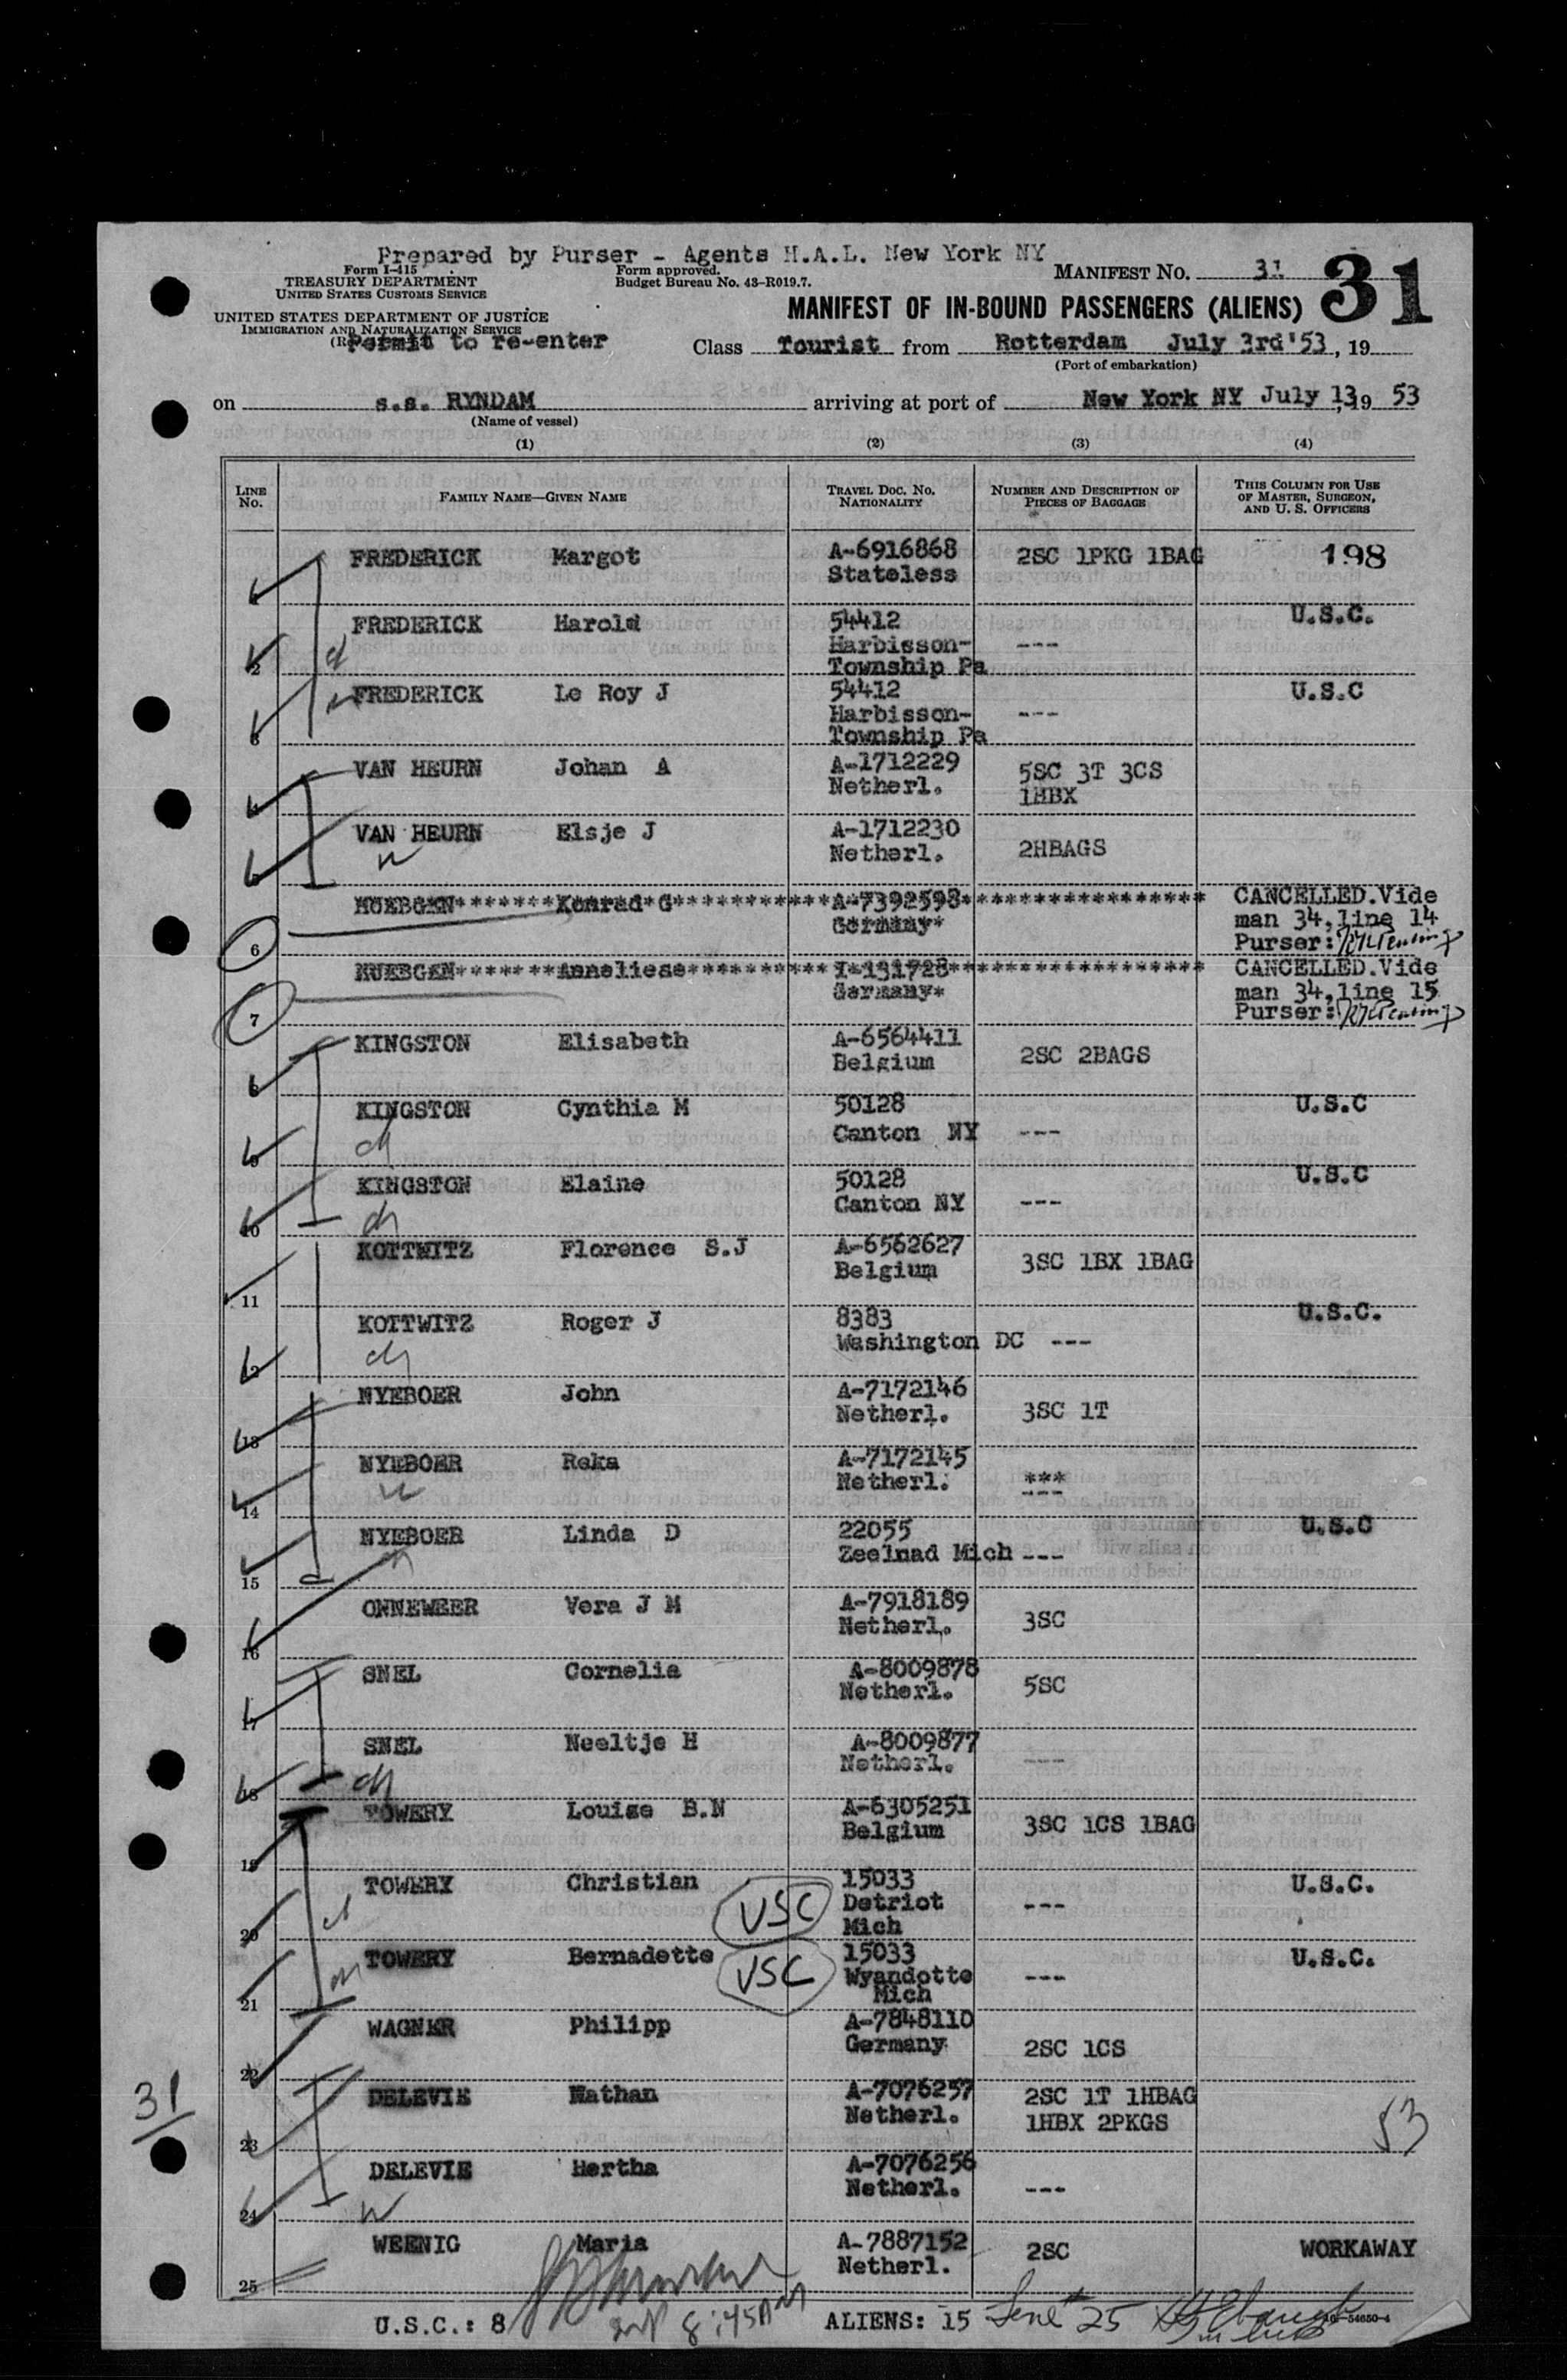 Prepared by Purser - Agents H.A.L. New York NY
Form I-415
TREASURY DEPARTMENT
UNITED STATES CUSTOMS SERVICE
Form approved.
Budget Bureau No. 43-R019.7.
MANIFEST NO. 31
31
UNITED STATES DEPARTMENT OF JUSTICE
IMMIGRATION AND NATURALIZATION SERVICE
MANIFEST OF IN-BOUND PASSENGERS (ALIENS)
Permit to re-enter
Class Tourist from Rotterdam July 3rd'53, 19
(Port of embarkation)
on s.s. RYNDAM arriving at port of New York NY July 13, 19 53
(Name of vessel)
(1) (2) (3) (4)
LINE NO. FAMILY NAME—GIVEN NAME TRAVEL DOC. NO. NATIONALITY NUMBER AND DESCRIPTION OF PIECES OF BAGGAGE THIS COLUMN FOR USE OF MASTER, SURGEON, AND U. S. OFFICERS
FREDERICK Margot A-6916868 2SC 1PKG 1BAG 198
Stateless
FREDERICK Harold 54412 U.S.C.
2 Harbisson- ---
Township Pa
FREDERICK Le Roy J 54412 U.S.C
3 Harbisson- ---
Township Pa
VAN HEURN Johan A A-1712229 5SC 3T 3CS
4 Netherl. 1HBX
VAN HEURN Elsje J A-1712230
Netherl. 2HBAGS
HUEBGEN*******Konrad*G***********A-7392598****************** CANCELLED.Vide
Germany* man 34,line 14
6 Purser:
HUEBGEN*******Anneliese**********I-131728******************* CANCELLED.Vide
Germany* man 34,line 15
7 Purser:
KINGSTON Elisabeth A-6564411
8 Belgium 2SC 2BAGS
KINGSTON Cynthia M 50128 U.S.C
9 Canton NY ---
KINGSTON Elaine 50128 U.S.C
10 Canton NY ---
KOTTWITZ Florence S.J A-6562627
11 Belgium 3SC 1BX 1BAG
KOTTWITZ Roger J 8383 U.S.C.
12 Washington DC ---
NYEBOER John A-7172146
13 Netherl. 3SC 1T
NYEBOER Reka A-7172145
14 Netherl. ***
---
NYEBOER Linda D 22055 U.S.C
15 Zeelnad Mich ---
ONNEWEER Vera J M A-7918189
16 Netherl. 3SC
SNEL Cornelia A-8009878
17 Netherl. 5SC
SNEL Neeltje H A-8009877
18 Netherl. ---
TOWERY Louise B.N A-6305251
19 Belgium 3SC 1CS 1BAG
TOWERY Christian USC 15033 U.S.C.
20 Detriot ---
Mich
TOWERY Bernadette USC 15033 U.S.C.
21 Wyandotte ---
Mich
WAGNER Philipp A-7848110
22 Germany 2SC 1CS
31
DELEVIE Nathan A-7076257 2SC 1T 1HBAG 53
23 Netherl. 1HBX 2PKGS
DELEVIE Hertha A-7076256
24 Netherl. ---
WEENIG Maria A-7887152 2SC WORKAWAY
25 Netherl.
U.S.C.: 8 8:45AM ALIENS: 15 Line # 25
16-54650-4